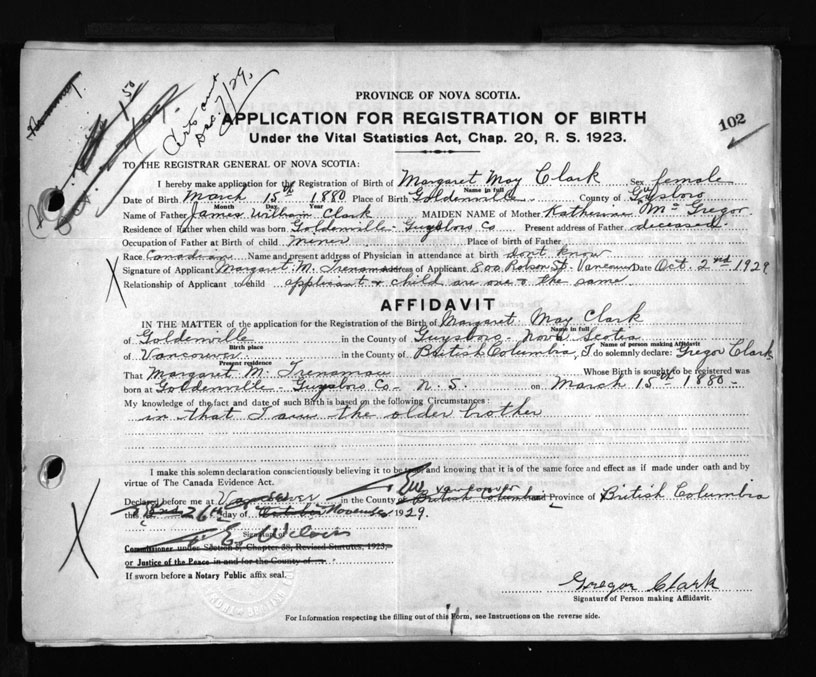 1.50
Dec 7/29
PROVINCE OF NOVA SCOTIA.
APPLICATION FOR REGISTRATION OF BIRTH
102
Under the Vital Statistics Act, Chap. 20, R. S. 1923.
TO THE REGISTRAR GENERAL OF NOVA SCOTIA:
I hereby make application for the Registration of Birth of Margaret May Clark Sex female
Name in full
Date of Birth March 15th 1880 Place of Birth Goldenville County of Guysboro
Month Day Year
Name of Father James William Clark MAIDEN NAME of Mother Katherine McGregor
Residence of Father when child was born Goldenville - Guysboro Co Present address of Father deceased
Occupation of Father at Birth of child miner Place of birth of Father
Race Canadian Name and present address of Physician in attendance at birth don't know
Signature of Applicant Margaret M. Address of Applicant 800 Robson St. Vancouver Date Oct. 2nd 1929
Relationship of Applicant to child applicant & child are one & the same
AFFIDAVIT
IN THE MATTER of the application for the Registration of the Birth of Margaret May Clark
Name in full
of Goldenville in the County of Guysboro - Nova Scotia
Birth place Name of person making Affidavit
of Vancouver in the County of British Columbia, I do solemnly declare: Gregor Clark
Present residence
That Margaret M. Whose Birth is sought to be registered was
born at Goldenville - Guysboro Co - N. S. on March 15th 1880 -
My knowledge of the fact and date of such Birth is based on the following Circumstances:
in that I am the older brother
I make this solemn declaration conscientiously believing it to be true and knowing that it is of the same force and effect as if made under oath and by
virtue of The Canada Evidence Act.
Declared before me at Vancouver in the County of British Columbia Vancouver and Province of British Columbia
this 26th day of November 1929.
Signature of
Commissioner under Section 9, Chapter 38, Revised Statutes, 1923,
or Justice of the Peace in and for the County of
If sworn before a Notary Public affix seal.
Gregor Clark
Signature of Person making Affidavit.
For Information respecting the filling out of this Form, see Instructions on the reverse side.